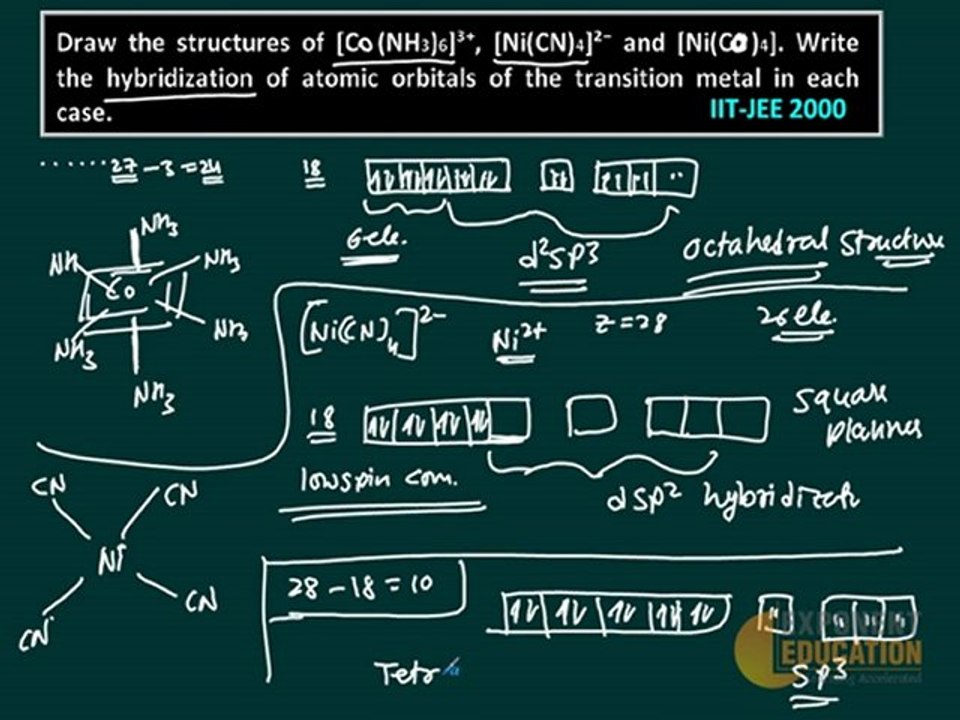 Draw the structures of [Co(NH₃)₆]³⁺, [Ni(CN)₄]²⁻ and [Ni(CO)₄]. Write
the hybridization of atomic orbitals of the transition metal in each
case.
IIT-JEE 2000
......27 - 3 = 24
18
6ele.
d²sp3
octahedral structure
NH₃
NH
NH₃
Co
NH₃
NH₃
NH₃
[Ni(CN)₄]²⁻
Ni²⁺
Z=28
26ele.
18
square
planner
lowspin com.
dsp²
CN
CN
Ni
CN
CN
28 - 18 = 10
Tetra
sp3
EXPONENT
EDUCATION
Accelerated